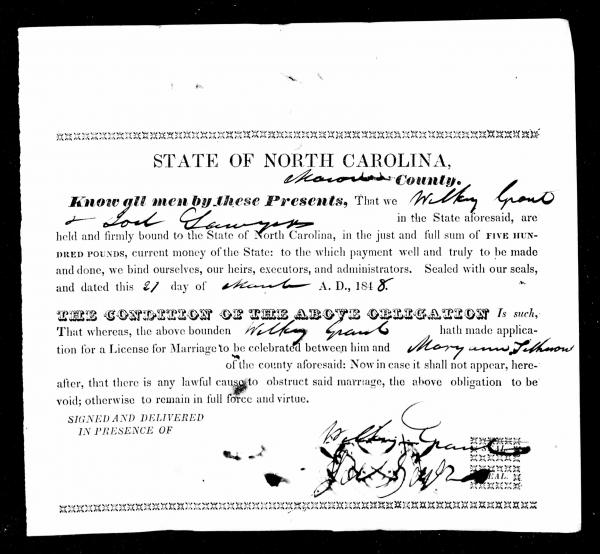 STATE OF NORTH CAROLINA,
County.
Know all men by these Presents, That we Wilkey Grant
& Joel Sawyers in the State aforesaid, are
held and firmly bound to the State of North Carolina, in the just and full sum of FIVE HUN-
DRED POUNDS, current money of the State: to the which payment well and truly to be made
and done, we bind ourselves, our heirs, executors, and administrators. Sealed with our seals,
and dated this 21 day of March A. D., 1848.
THE CONDITION OF THE ABOVE OBLIGATION Is such,
That whereas, the above bounden Wilkey Grant hath made applica-
tion for a License for Marriage to be celebrated between him and Maryann
of the county aforesaid: Now in case it shall not appear, here-
after, that there is any lawful cause to obstruct said marriage, the above obligation to be
void; otherwise to remain in full force and virtue.
SIGNED AND DELIVERED
IN PRESENCE OF
Wilkey Grant
SEAL.